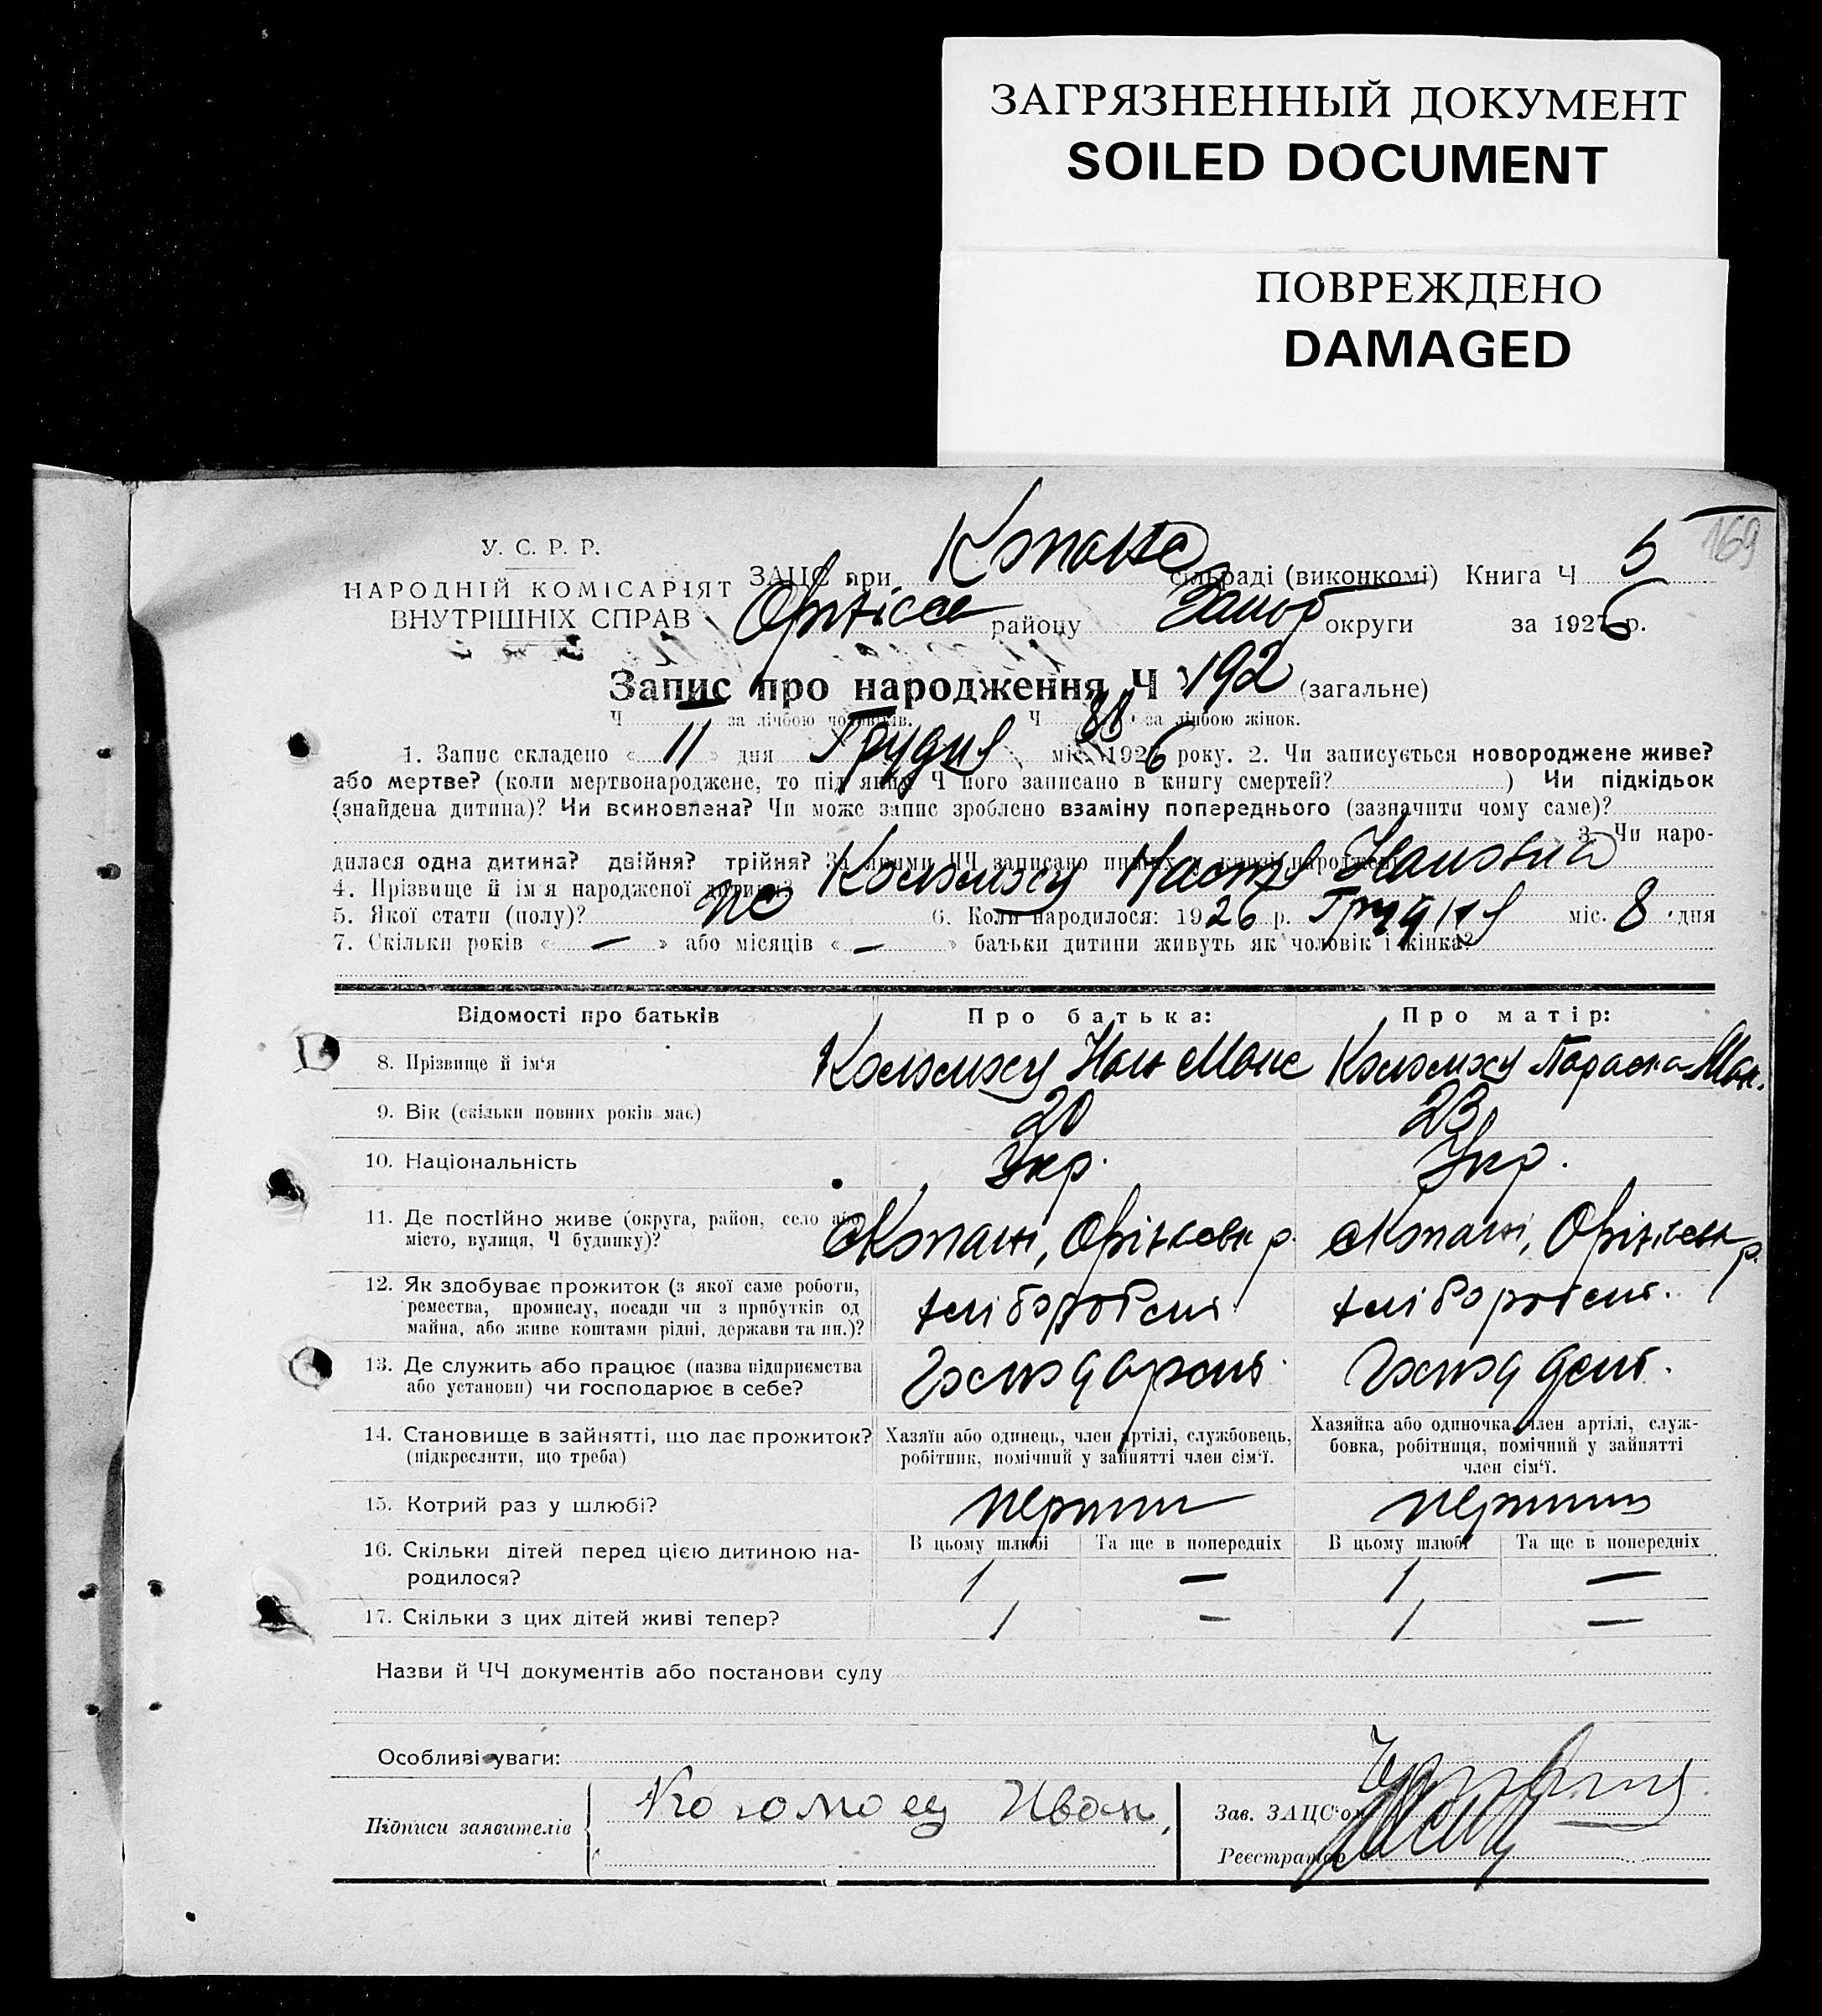 ЗАГРЯЗНЕННЫЙ ДОКУМЕНТ
SOILED DOCUMENT
ПОВРЕЖДЕНО
DAMAGED
169
У. С. Р. Р.
НАРОДНІЙ КОМІСАРІЯТ
ВНУТРІШНІХ СПРАВ
ЗАЦС при сільраді (виконкомі) Книга Ч 5
району округи за 1926 р.
Запис про народження Ч 192 (загальне)
Ч за лічбою чоловіків. Ч 88 за лічбою жінок.
1. Запис складено « 11 » дня Грудня міс. 1926 року. 2. Чи записується новороджене живе?
або мертве? (коли мертвонароджене, то під яким Ч його записано в книгу смертей? ) Чи підкідьок
(знайдена дитина)? Чи всиновлена? Чи може запис зроблено взаміну попереднього (зазначити чому саме)?
3. Чи наро-
дилася одна дитина? двійня? трійня? За якими ЧЧ записано инших в книзі народжень
4. Прізвище й ім'я народженої дитини?
5. Якої стати (полу)? 6. Коли народилося: 1926 р. Грудня міс. 8 дня
7. Скільки років « — » або місяців « — » батьки дитини живуть як чоловік і жінка?
Відомості про батьків Про батька: Про матір:
8. Прізвище й ім'я
9. Вік (скільки повних років має) 20 23
10. Національність Укр. Укр.
11. Де постійно живе (округа, район, село або
місто, вулиця, Ч будинку)? с Копані, Оріхівськ р. с Копані, Оріхівськ р.
12. Як здобуває прожиток (з якої саме роботи,
ремества, промислу, посади чи з прибутків од
майна, або живе коштами рідні, держави та ин.)?
13. Де служить або працює (назва підприємства
або установи) чи господарює в себе?
14. Становище в зайнятті, що дає прожиток?
(підкреслити, що треба)
Хазяїн або одинець, член артілі, службовець,
робітник, помічний у зайнятті член сім'ї.
Хазяйка або одиночка, член артілі, служ-
бовка, робітниця, помічний у зайнятті
член сім'ї.
15. Котрий раз у шлюбі?
16. Скільки дітей перед цією дитиною на-
родилося?
В цьому шлюбі Та ще в попередніх В цьому шлюбі Та ще в попередніх
1 — 1 —
17. Скільки з цих дітей живі тепер? 1 - 1 —
Назви й ЧЧ документів або постанови суду
Особливі уваги:
Підписи заявителів Иван
Зав. ЗАЦС'ом
Реєстратор